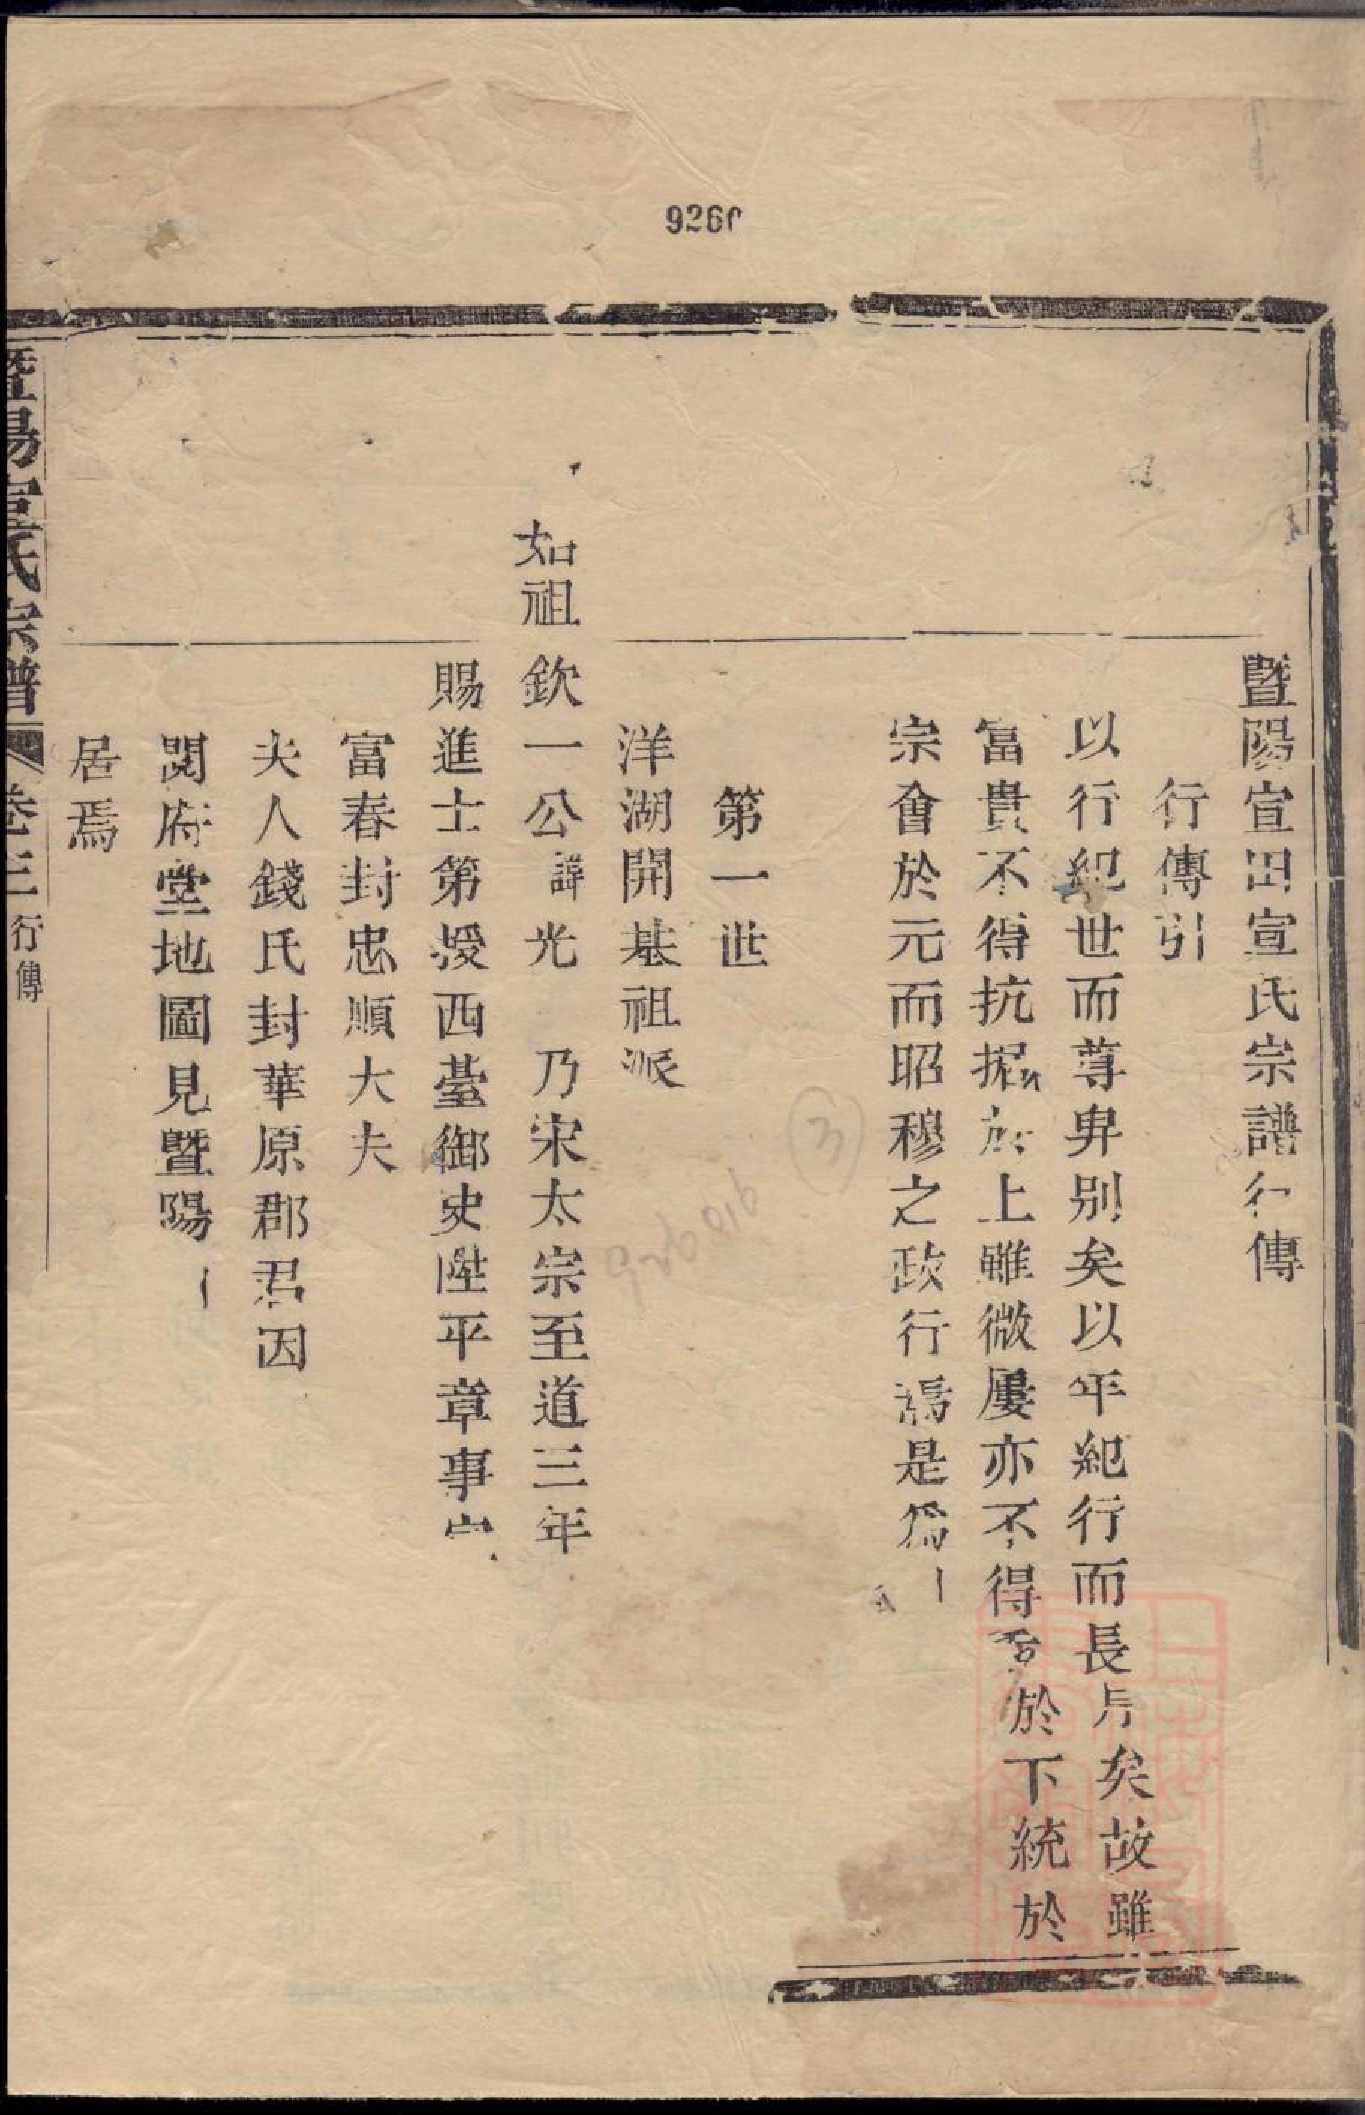 9260
暨陽宣田宣氏宗譜行傳
行傳引
以行紀世而尊卑别矣以年紀行而長矣故雖
富貴不得抗於上雖微屢亦不得於下統於
宗會於元而昭穆之政行焉是爲
第一世
洋湖開基祖派
如祖 欽一公諱光 乃宋太宗至道三年
賜進士第授西臺御史陞平章事
富春封忠順大夫
夫人錢氏封華原郡君因
閱府堂地圖見暨陽
居焉
暨陽宣氏宗譜 卷三 行傳
926016
3